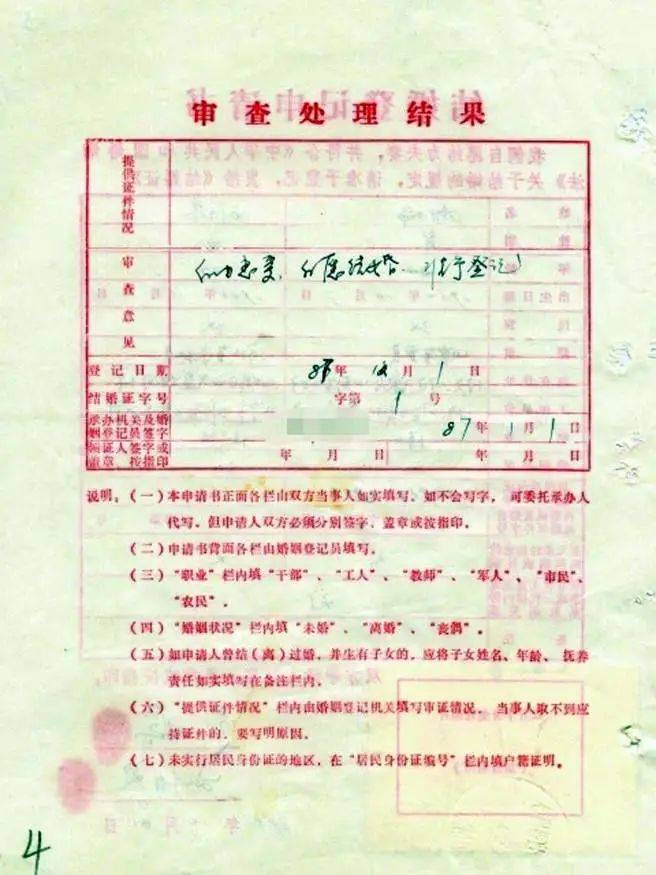 审查处理结果
提供证件情况
审查意见
自愿结婚 准予登记
登记日期 86年12月1日
结婚证字号 字第1号
承办机关及婚姻登记员签字 87年1月1日
领证人签字或盖章、按指印 年 月 日 年 月 日
说明：（一）本申请书正面各栏由双方当事人如实填写。如不会写字，可委托承办人
代写。但申请人双方必须分别签字、盖章或按指印。
（二）申请书背面各栏由婚姻登记员填写。
（三）“职业”栏内填“干部”、“工人”、“教师”、“军人”、“市民”、
“农民”。
（四）“婚姻状况”栏内填“未婚”、“离婚”、“丧偶”。
（五）如申请人曾结（离）过婚，并生有子女的，应将子女姓名、年龄、抚养
责任如实填写在备注栏内。
（六）“提供证件情况”栏内由婚姻登记机关填写审证情况。当事人取不到应
持证件的，要写明原因。
（七）未实行居民身份证的地区，在“居民身份证编号”栏内填户籍证明。
4